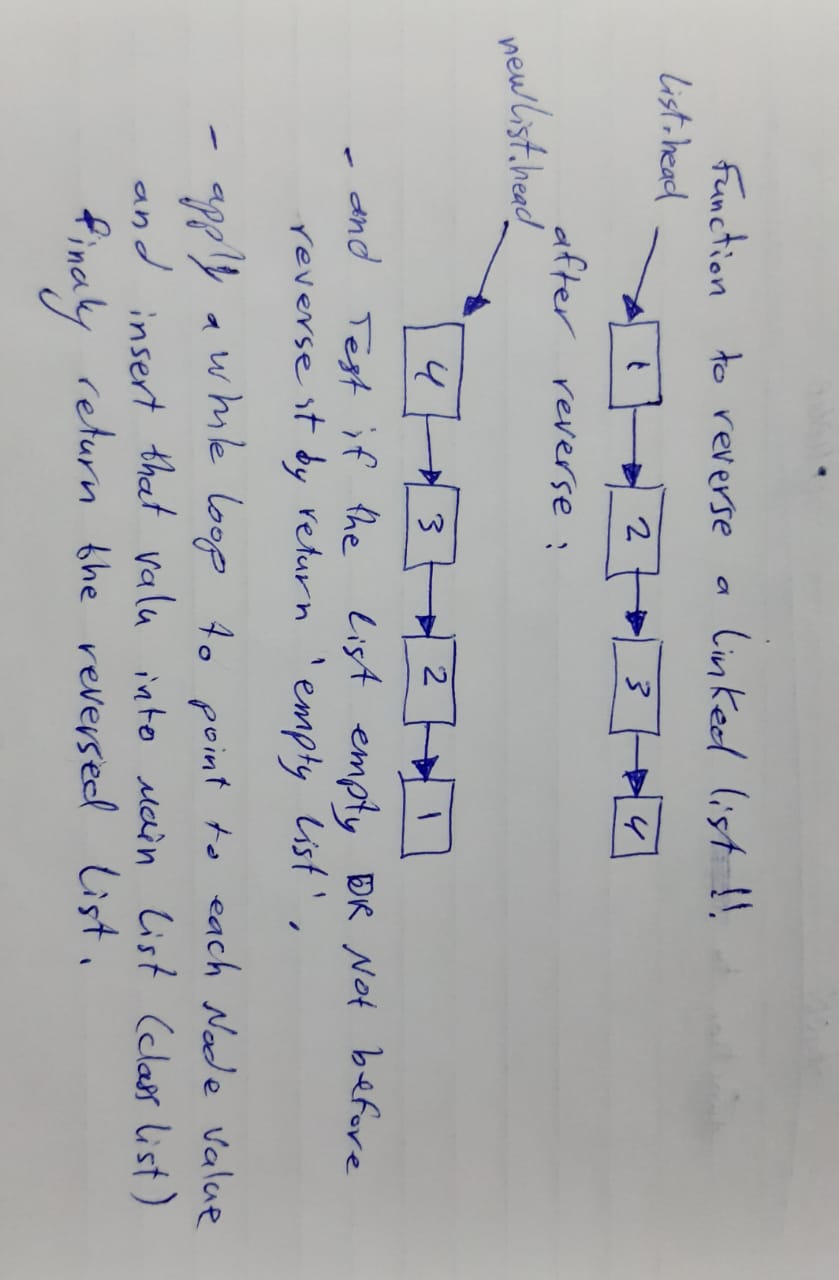 function to reverse a linked list !!
list.head
1 2 3 4
after reverse :
newlist.head
4 3 2 1
- and Test if the list empty OR Not before
reverse it by return 'empty list'.
- apply a while loop to point to each Node value
and insert that valu into main list (class list)
finaly return the reversed list.